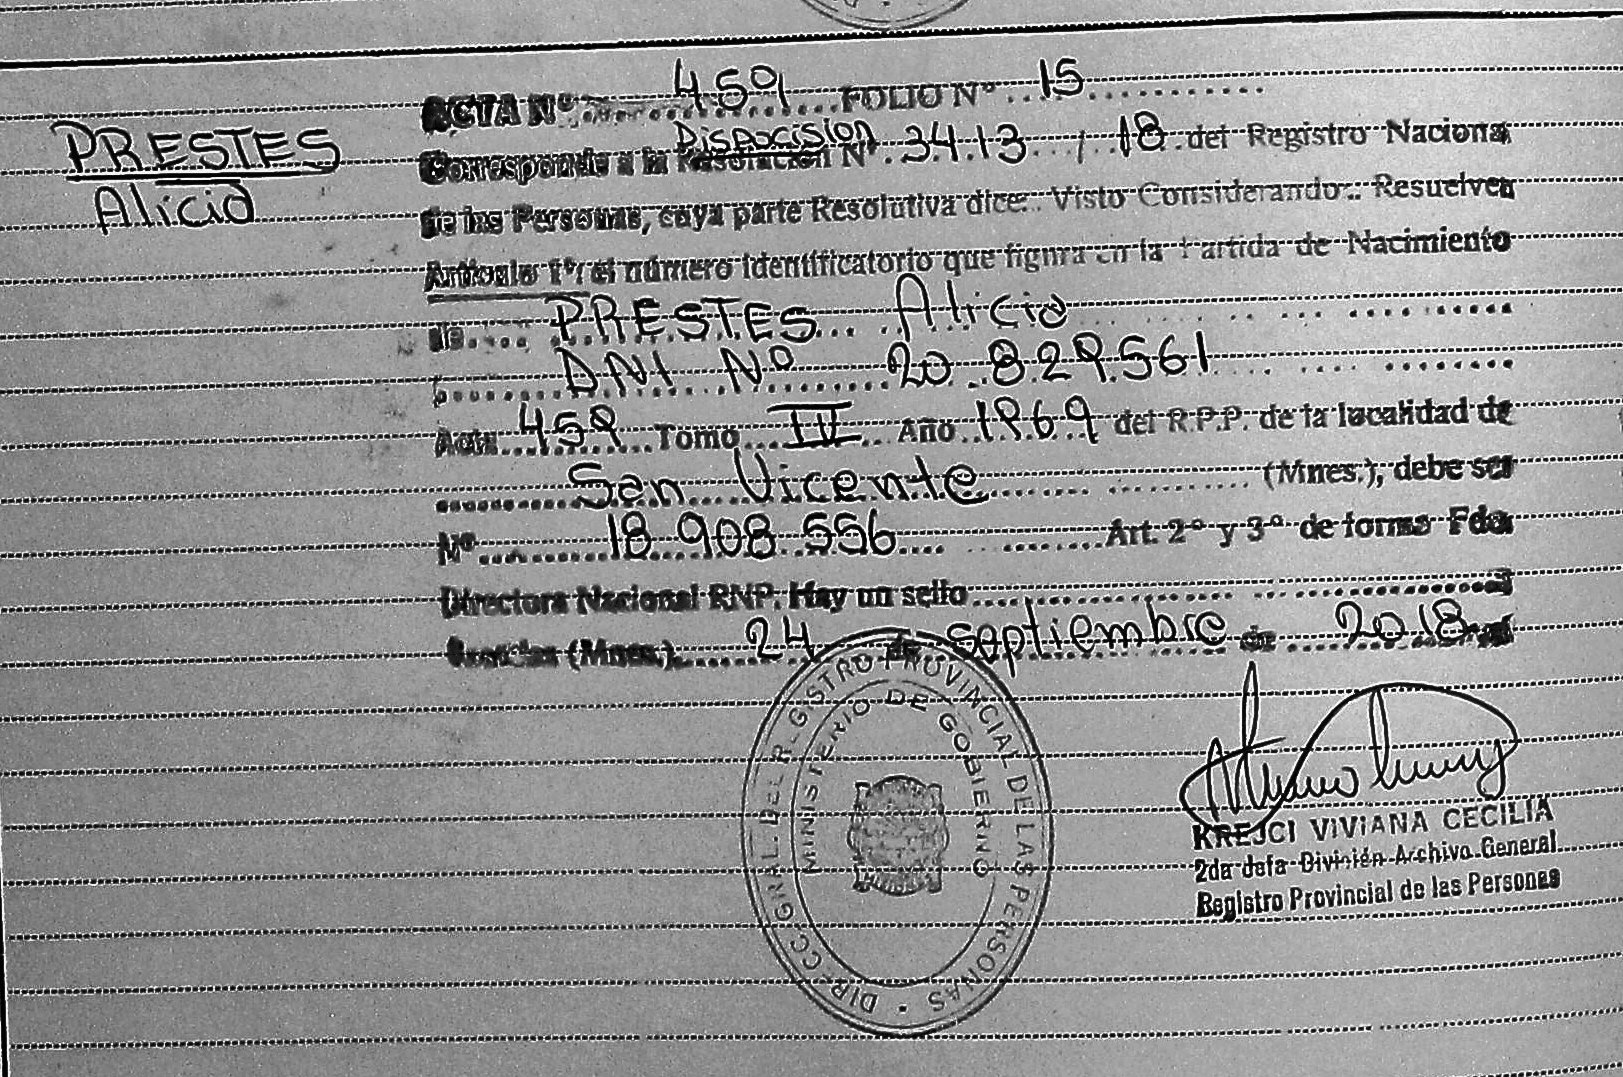 PRESTES
Alicia
ACTA Nº 459 FOLIO Nº 15
Disposicision
Corresponde a la Resolucion Nº 3413 / 18 del Registro Naciona
de las Personas, cuya parte Resolutiva dice: Visto Considerando: Resuelven
Artículo 1º: el número identificatorio que figura en la Partida de Nacimiento
de PRESTES Alicia
DNI Nº 20.829.561
Acta 459 Tomo IV Año 1969 del R.P.P. de la localidad de
San Vicente (Mnes.), debe ser
Nº 18.908.556 Art. 2º y 3º de forma Fdo.
Directora Nacional RNP. Hay un sello
(Mnes.) 24 de septiembre de 2018
DIRECC. GRAL. DEL REGISTRO PROVINCIAL DE LAS PERSONAS
MINISTERIO DE GOBIERNO
KREJCI VIVIANA CECILIA
2da Jefa División Archivo General
Registro Provincial de las Personas